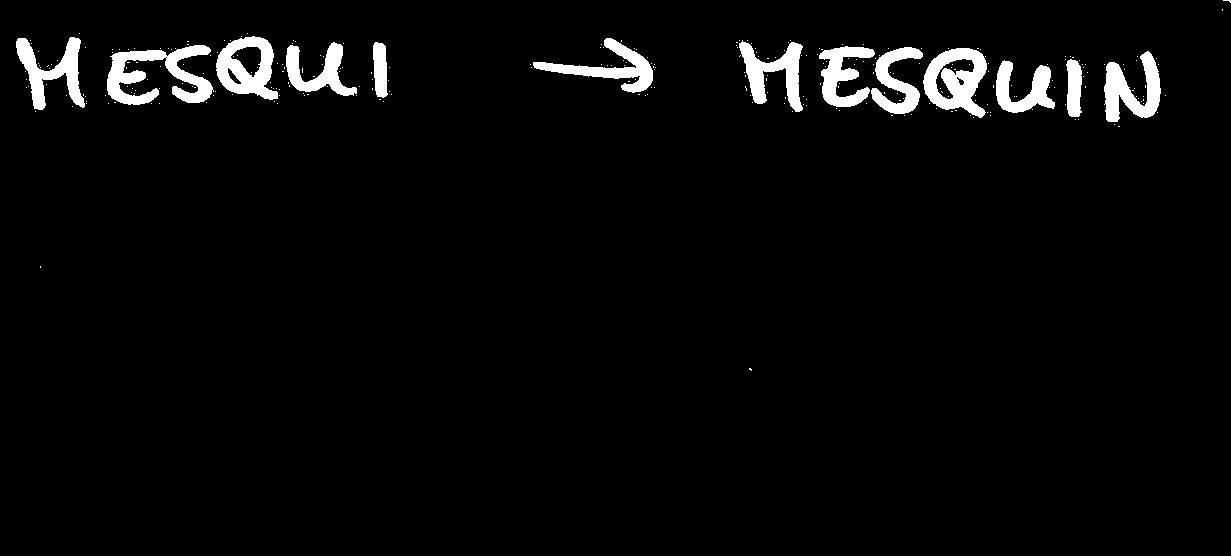 MESQUI → MESQUIN